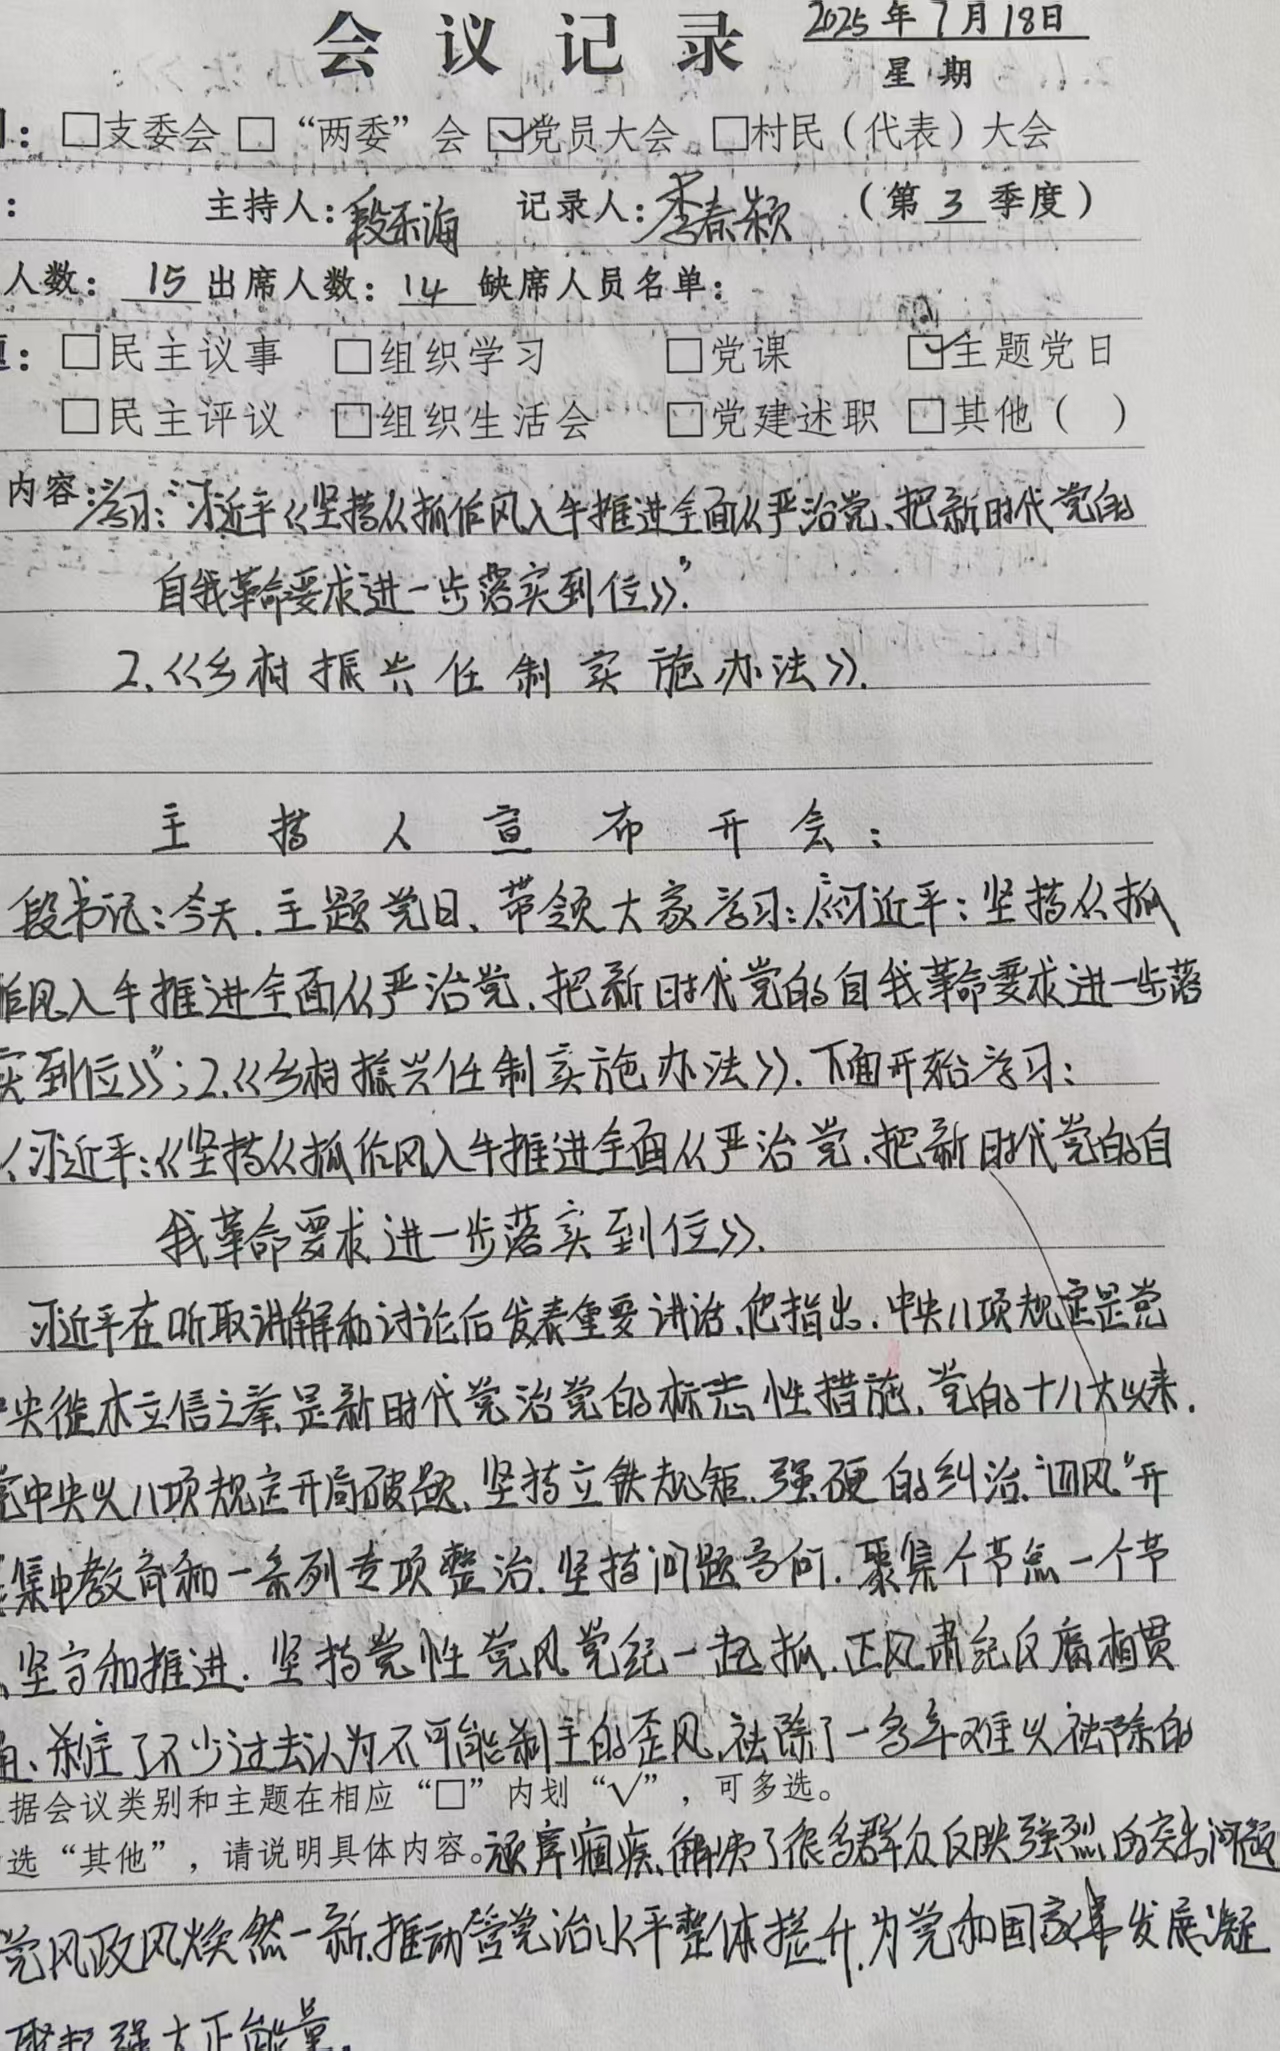 会议记录 2025年7月18日
星期
：□支委会 □“两委”会 ☑党员大会 □村民（代表）大会
： 主持人：段 海 记录人：李春颖 （第3季度）
人数：15 出席人数：14 缺席人员名单：
：□民主议事 □组织学习 □党课 ☑主题党日
□民主评议 □组织生活会 □党建述职 □其他（ ）
内容：学习：“习近平《坚持从抓作风入手推进全面从严治党、把新时代党的
自我革命要求进一步落实到位》”.
2、《乡村振兴任制实施办法》.
主持人宣布开会：
段书记：今天、主题党日、带领大家学习：习近平：坚持从抓
作风入手推进全面从严治党、把新时代党的自我革命要求进一步落
实到位》”；2、《乡村振兴任制实施办法》. 下面开始学习：
习近平：《坚持从抓作风入手推进全面从严治党、把新时代党的自
我革命要求进一步落实到位》.
习近平在听取讲解和讨论后发表重要讲话、他指出、中央八项规定是党
中央徙木立信之举、是新时代党治党的标志性措施、党的十八大以来.
党中央以八项规定开局破题、坚持立铁规矩、强硬的纠治“四风”开
集中教育和一系列专项整治、坚持问题导向、聚集个节点一个节
坚守和推进、坚持党性党风党纪一起抓、正风肃纪反腐相贯
刹住了不少过去认为不可能刹住的歪风、祛除了一多年难以祛除的
据会议类别和主题在相应“□”内划“√”，可多选。
选“其他”，请说明具体内容。顽瘴痼疾、解决了很多群众反映强烈的突出问题
党风政风焕然一新、推动管党治水平整体提升、为党和国家事发展凝
聚起强大正能量.